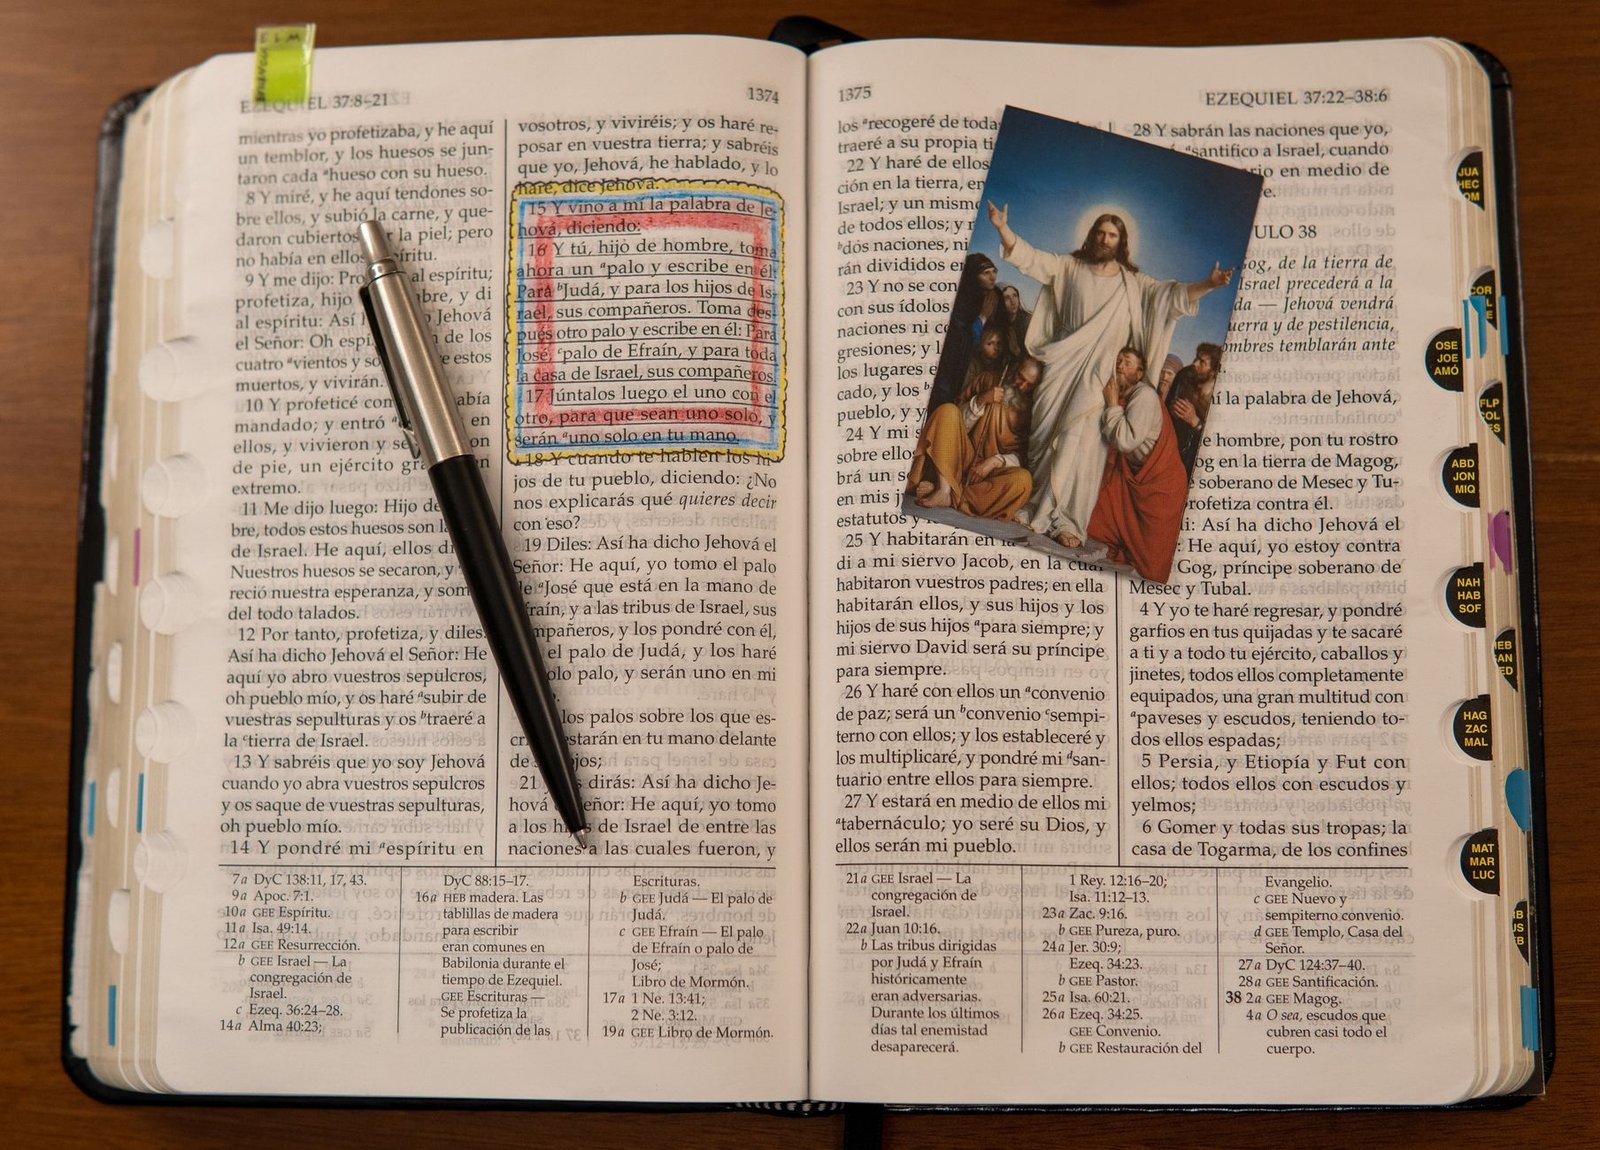 EZEQUIEL 37:8–21
1374
mientras yo profetizaba, y he aquí
un temblor, y los huesos se jun-
taron cada ᵃhueso con su hueso.
8 Y miré, y he aquí tendones so-
bre ellos, y subió la carne, y que-
daron cubiertos la piel; pero
no había en ellos
9 Y me dijo: al espíritu;
profetiza, hijo y di
al espíritu: Así Jehová
el Señor: Oh de los
cuatro ᵃvientos y estos
muertos, y vivirán.
10 Y profeticé
mandado; y entró en
ellos, y vivieron y
de pie, un ejército
extremo.
11 Me dijo luego: Hijo de
bre, todos estos huesos son
de Israel. He aquí, ellos
Nuestros huesos se secaron, y
reció nuestra esperanza, y
del todo talados.
12 Por tanto, profetiza, y diles:
Así ha dicho Jehová el Señor: He
aquí yo abro vuestros sepulcros,
oh pueblo mío, y os haré ᵃsubir de
vuestras sepulturas y os ᵇtraeré a
la ᶜtierra de Israel.
13 Y sabréis que yo soy Jehová
cuando yo abra vuestros sepulcros
y os saque de vuestras sepulturas,
oh pueblo mío.
14 Y pondré mi ᵃespíritu en
vosotros, y viviréis; y os haré re-
posar en vuestra tierra; y sabréis
que yo, Jehová, he hablado, y lo
haré, dice Jehová.
15 Y vino a mí la palabra de Je-
hová, diciendo:
16 Y tú, hijo de hombre, toma
ahora un ᵃpalo y escribe en él:
Para ᵇJudá, y para los hijos de Is-
rael, sus compañeros. Toma des-
pués otro palo y escribe en él: Para
José, ᶜpalo de Efraín, y para toda
la casa de Israel, sus compañeros.
17 Júntalos luego el uno con el
otro, para que sean uno solo, y
serán ᵃuno solo en tu mano.
18 Y cuando te hablen los hi-
jos de tu pueblo, diciendo: ¿No
nos explicarás qué quieres decir
con eso?
19 Diles: Así ha dicho Jehová el
Señor: He aquí, yo tomo el palo
de ᵃJosé que está en la mano de
Efraín, y a las tribus de Israel, sus
compañeros, y los pondré con él,
el palo de Judá, y los haré
palo, y serán uno en mi
los palos sobre los que es-
estarán en tu mano delante
de
21 dirás: Así ha dicho Je-
hová Señor: He aquí, yo tomo
a los hijos de Israel de entre las
naciones a las cuales fueron, y
7a DyC 138:11, 17, 43.
9a Apoc. 7:1.
10a GEE Espíritu.
11a Isa. 49:14.
12a GEE Resurrección.
b GEE Israel — La
congregación de
Israel.
c Ezeq. 36:24–28.
14a Alma 40:23;
DyC 88:15–17.
16a HEB madera. Las
tablillas de madera
para escribir
eran comunes en
Babilonia durante el
tiempo de Ezequiel.
GEE Escrituras —
Se profetiza la
publicación de las
Escrituras.
b GEE Judá — El palo de
Judá.
c GEE Efraín — El palo
de Efraín o palo de
José;
Libro de Mormón.
17a 1 Ne. 13:41;
2 Ne. 3:12.
19a GEE Libro de Mormón.
1375
EZEQUIEL 37:22–38:6
los ᵃrecogeré de
traeré a su propia
22 Y haré de ellos
ción en la tierra, en
Israel; y un mismo
de todos ellos; y
ᵇdos naciones, ni
rán divididos en
23 Y no se con
con sus ídolos
naciones ni
gresiones; y
los lugares
cado, y los
pueblo, y
24 Y mi
sobre ellos
brá un
en mis
estatutos y
25 Y habitarán en la
di a mi siervo Jacob, en la cual
habitaron vuestros padres; en ella
habitarán ellos, y sus hijos y los
hijos de sus hijos ᵃpara siempre; y
mi siervo David será su príncipe
para siempre.
26 Y haré con ellos un ᵃconvenio
de paz; será un ᵇconvenio ᶜsempi-
terno con ellos; y los estableceré y
los multiplicaré, y pondré mi ᵈsan-
tuario entre ellos para siempre.
27 Y estará en medio de ellos mi
ᵃtabernáculo; yo seré su Dios, y
ellos serán mi pueblo.
28 Y sabrán las naciones que yo,
ᵃsantifico a Israel, cuando
en medio de
ULO 38
de la tierra de
Israel precederá a la
— Jehová vendrá
y de pestilencia,
temblarán ante
la palabra de Jehová,
hombre, pon tu rostro
en la tierra de Magog,
soberano de Mesec y Tu-
profetiza contra él.
Así ha dicho Jehová el
: He aquí, yo estoy contra
Gog, príncipe soberano de
Mesec y Tubal.
4 Y yo te haré regresar, y pondré
garfios en tus quijadas y te sacaré
a ti y a todo tu ejército, caballos y
jinetes, todos ellos completamente
equipados, una gran multitud con
ᵃpaveses y escudos, teniendo to-
dos ellos espadas;
5 Persia, y Etiopía y Fut con
ellos; todos ellos con escudos y
yelmos;
6 Gomer y todas sus tropas; la
casa de Togarma, de los confines
21a GEE Israel — La
congregación de
Israel.
22a Juan 10:16.
b Las tribus dirigidas
por Judá y Efraín
históricamente
eran adversarias.
Durante los últimos
días tal enemistad
desaparecerá.
1 Rey. 12:16–20;
Isa. 11:12–13.
23a Zac. 9:16.
b GEE Pureza, puro.
24a Jer. 30:9;
Ezeq. 34:23.
b GEE Pastor.
25a Isa. 60:21.
26a Ezeq. 34:25.
GEE Convenio.
b GEE Restauración del
Evangelio.
c GEE Nuevo y
sempiterno convenio.
d GEE Templo, Casa del
Señor.
27a DyC 124:37–40.
28a GEE Santificación.
38 2a GEE Magog.
4a O sea, escudos que
cubren casi todo el
cuerpo.
JUA
HEC
ROM
COR
OSE
JOE
AMÓ
FLP
COL
ABD
JON
MIQ
NAH
HAB
SOF
HEB
HAG
ZAC
MAL
MAT
MAR
LUC